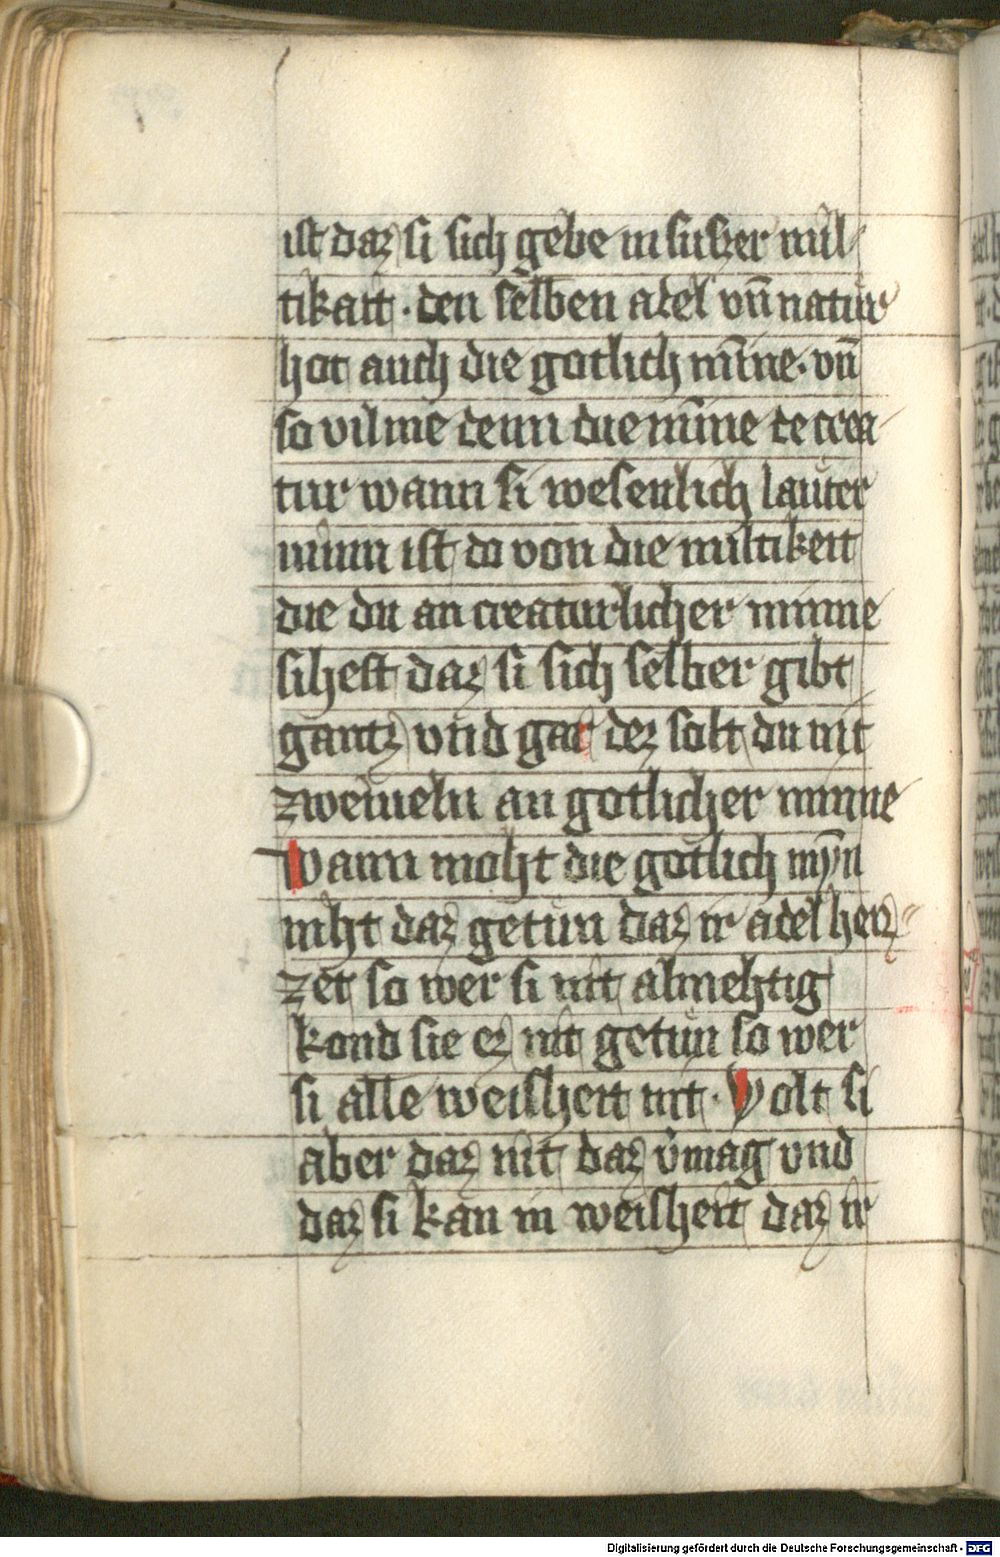 ist daz si sich gebe in suszer mil-
tikait · den selben adel vn̄ natur
hot auch die gotlich mīne · vn̄
so vil me denn die mīne de crea-
tur wann si wesenlich lauter
minn ist do von die miltikeit
die du an creaturlicher minne
sihest daz si sich selber gibt
gantz vnd gar dez solt du nit
zweiueln an gotlicher minne
Wann moht die gotlich myn̄
niht daz getun daz ir adel heri-
zet so wer si nit almehtig
kond sie ez nit getun so wer
si alle weisheit nit · Wolt si
aber daz nit daz v̄mag vnd
daz si kan in weisheit daz ir
Digitalisierung gefördert durch die Deutsche Forschungsgemeinschaft - DFG